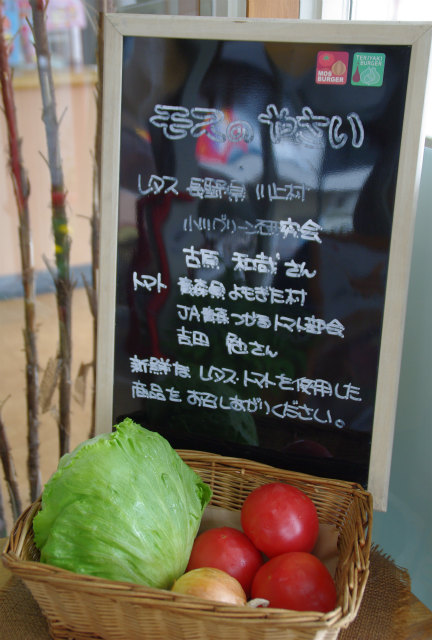 MOS BURGER
TERIYAKI BURGER
モスの やさい
レタス 長野県 川上村
会
古原 和哉 さん
トマト 青森県よもぎた村
JA青森 つがるトマト部会
吉田 勉さん
新鮮な レタス・トマトを使用した
商品を お召しあがりください。